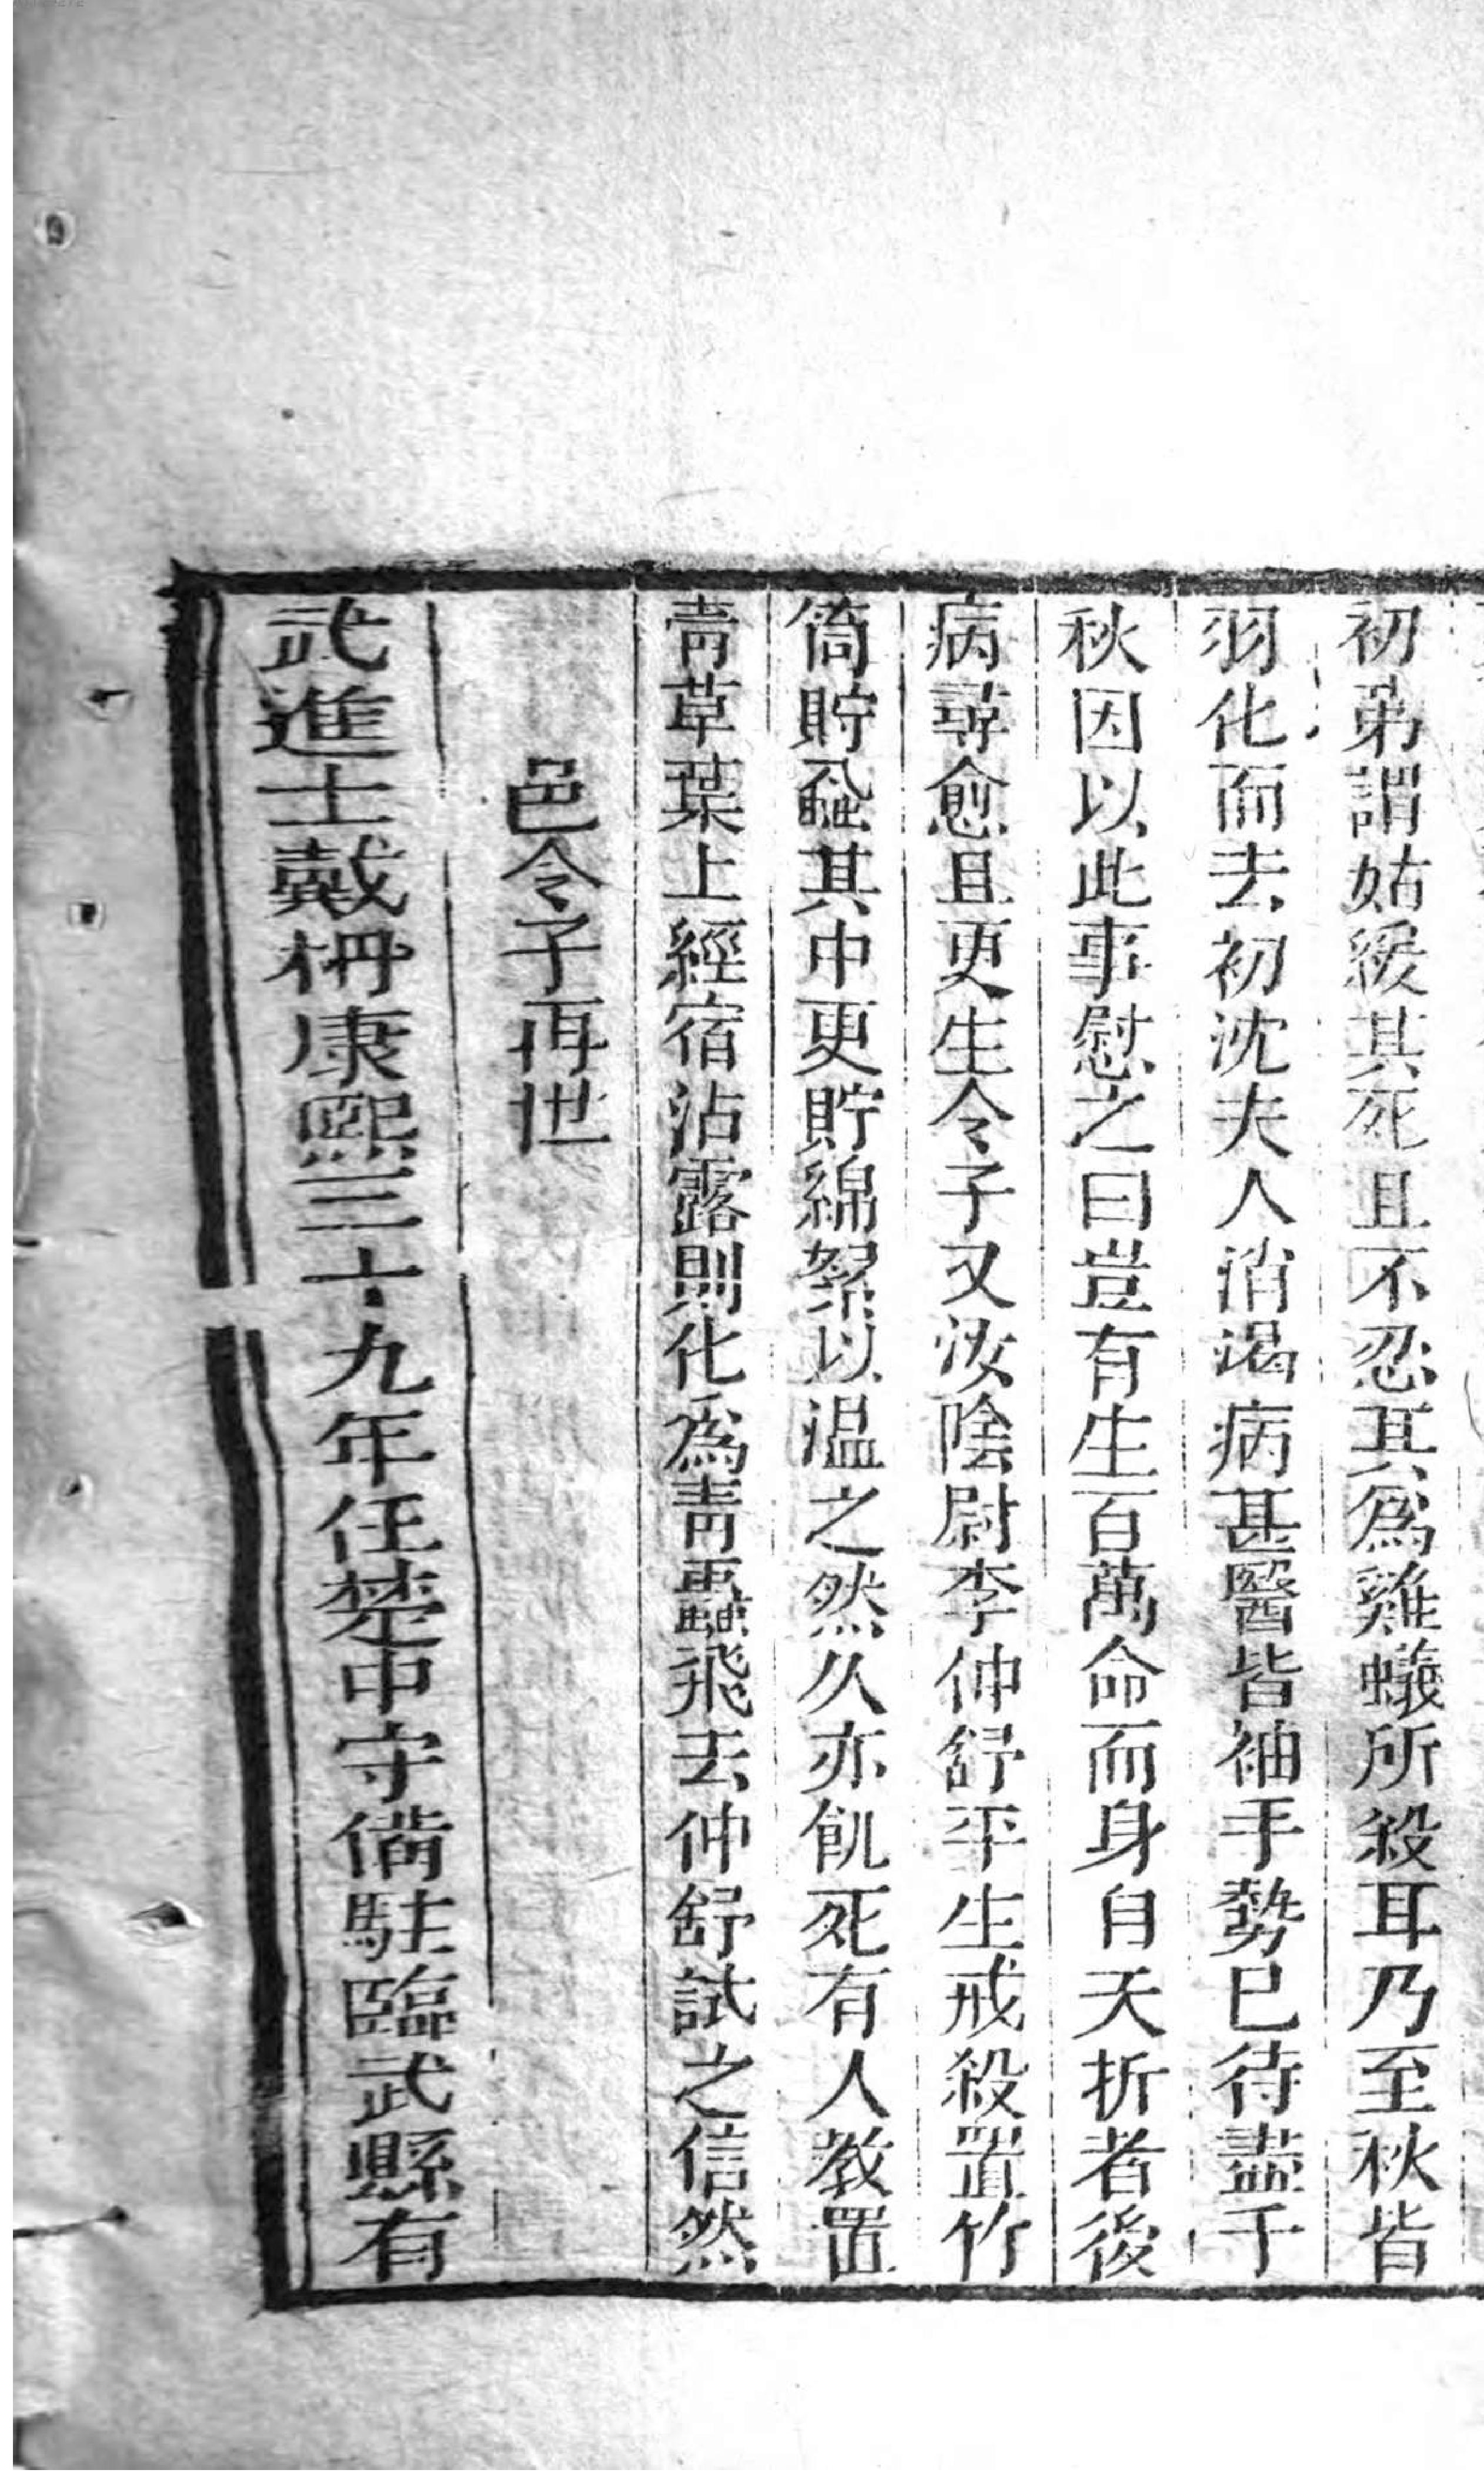 初弟謂姑緩其死且不忍其為雞蟻所殺耳乃至秋皆
羽化而去初沈夫人消渴病甚醫皆袖手勢已待盡于
秋因以此事慰之曰豈有生百萬命而身自夭折者後
病尋愈且更生令子又汝陰尉李仲舒平生戒殺置竹
筒貯蝨其中更貯綿絮以溫之然久亦飢死有人教置
青草葉上經宿沾露則化為青蟲飛去仲舒試之信然
邑令子再世
武進士戴枬康熙三十九年任楚中守備駐臨武縣有